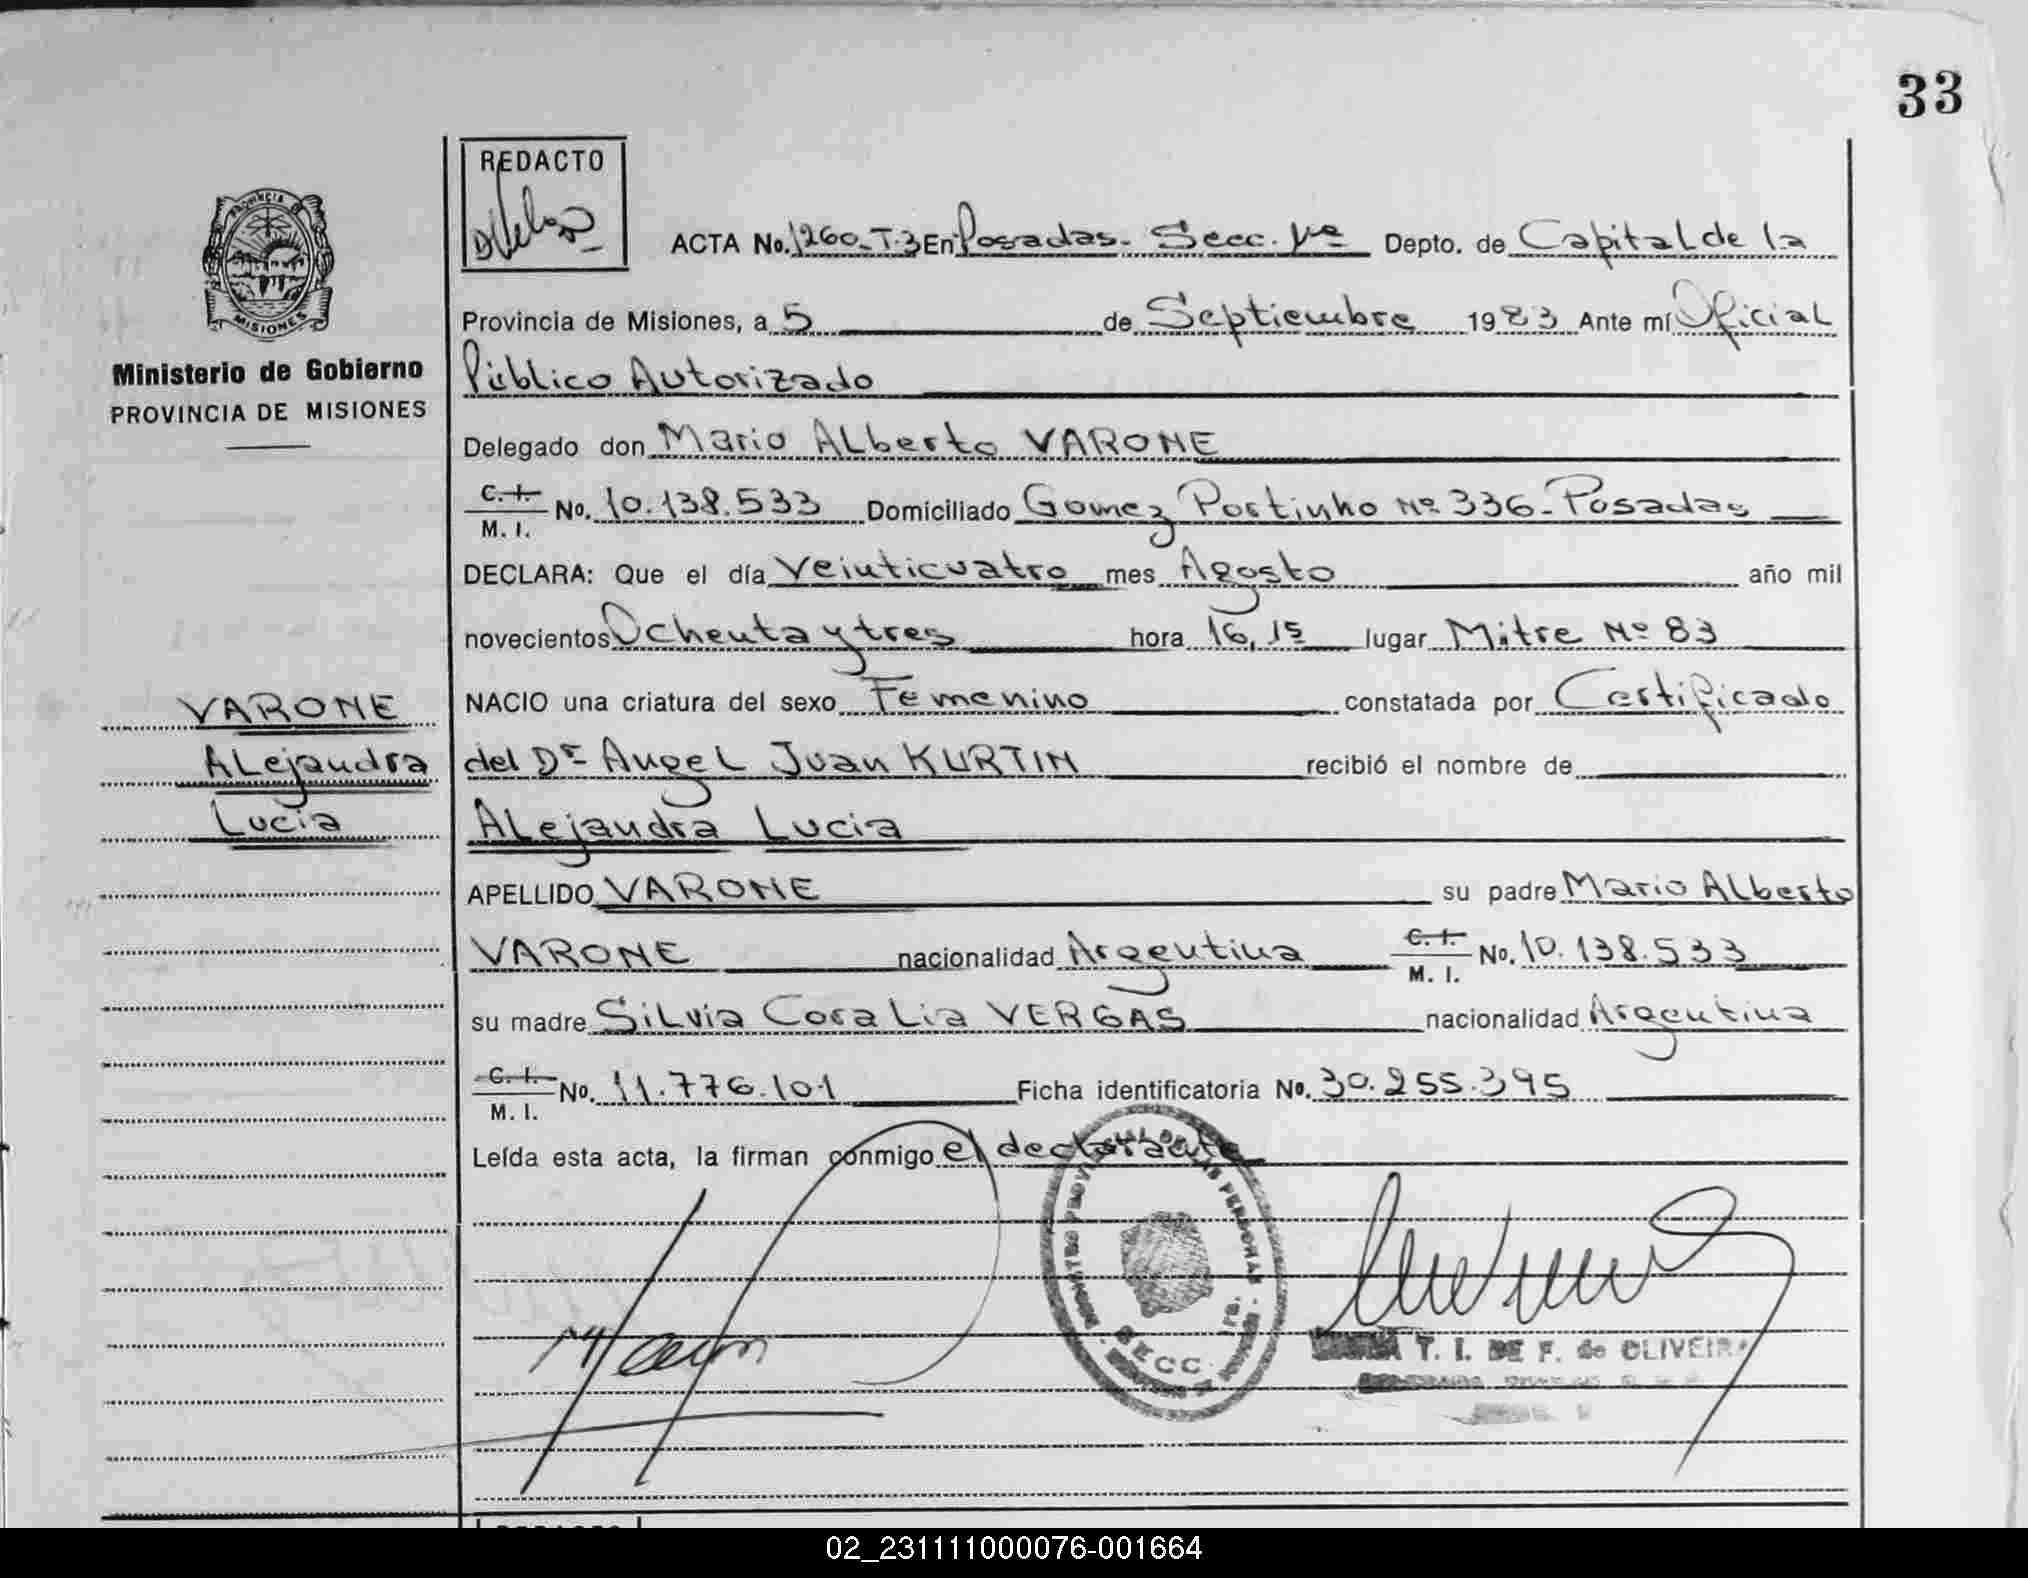 33
REDACTO
PROVINCIA
MISIONES
ACTA No. 1260-T.3 En Posadas. Secc. 1ra Depto. de Capital de la
Provincia de Misiones, a 5 de Septiembre 1983 Ante mí Oficial
Ministerio de Gobierno
PROVINCIA DE MISIONES
Público Autorizado
Delegado don Mario Alberto VARONE
C. I.
M. I. No. 10.138.533 Domiciliado Gomez Portinho Nº 336-Posadas
DECLARA: Que el día Veinticuatro mes Agosto año mil
novecientos Ochenta y tres hora 16,15 lugar Mitre Nº 83
VARONE
Alejandra
Lucia
NACIO una criatura del sexo Femenino constatada por Certificado
del Dr Angel Juan KURTIN recibió el nombre de
Alejandra Lucia
APELLIDO VARONE su padre Mario Alberto
VARONE nacionalidad Argentina C. I. M. I. No. 10.138.533
su madre Silvia Coralia VERGAS nacionalidad Argentina
C. I.
M. I. No. 11.776.101 Ficha identificatoria No. 30.255.395
Leída esta acta, la firman conmigo el declarante
T. I. DE F. de OLIVEIRA
02_231111000076-001664